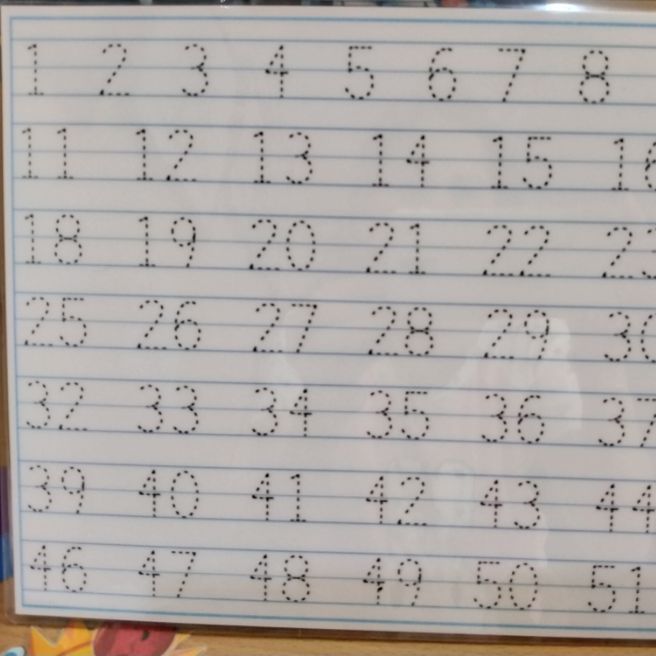 1 2 3 4 5 6 7 8
11 12 13 14 15 16
18 19 20 21 22 23
25 26 27 28 29 30
32 33 34 35 36 37
39 40 41 42 43 44
46 47 48 49 50 51